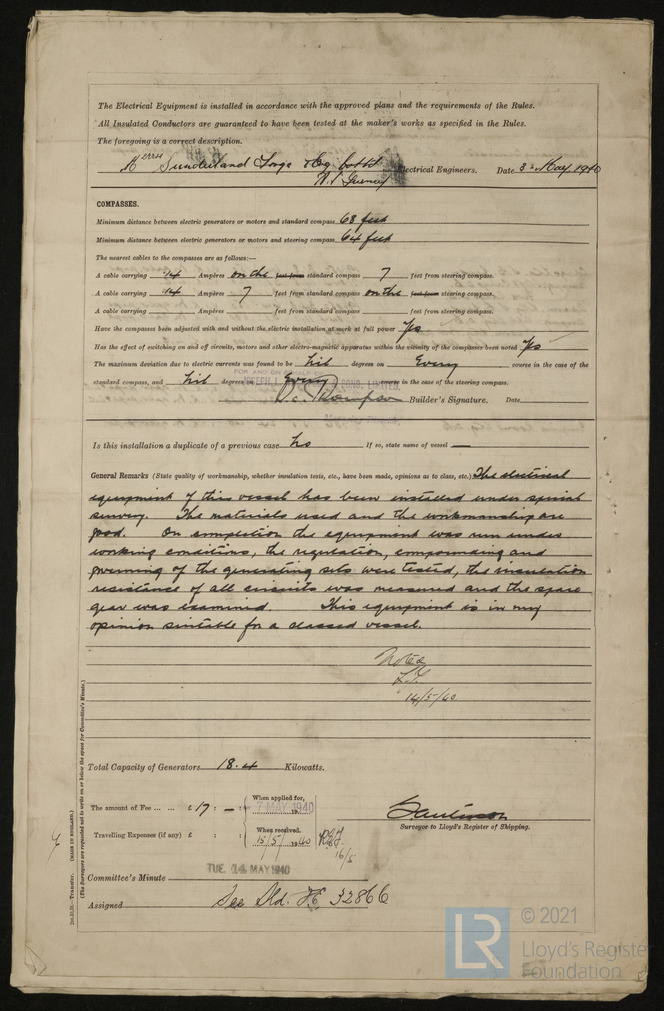 The Electrical Equipment is installed in accordance with the approved plans and the requirements of the Rules.
All Insulated Conductors are guaranteed to have been tested at the maker's works as specified in the Rules.
The foregoing is a correct description.
Sunderland Forge & Eng. Electrical Engineers. Date 3rd May, 1940
COMPASSES.
Minimum distance between electric generators or motors and standard compass 68 feet
Minimum distance between electric generators or motors and steering compass 64 feet
The nearest cables to the compasses are as follows:—
A cable carrying .14 Ampères on the feet from standard compass 7 feet from steering compass.
A cable carrying .14 Ampères 7 feet from standard compass on the feet from steering compass.
A cable carrying Ampères feet from standard compass feet from steering compass.
Have the compasses been adjusted with and without the electric installation at work at full power Yes
Has the effect of switching on and off circuits, motors and other electro-magnetic apparatus within the vicinity of the compasses been noted Yes
The maximum deviation due to electric currents was found to be Nil degrees on Every course in the case of the
FOR AND ON BEHALF OF
standard compass, and Nil degrees on Every course in the case of the steering compass.
Thompson Builder's Signature. Date
Is this installation a duplicate of a previous case No If so, state name of vessel —
General Remarks (State quality of workmanship, whether insulation tests, etc., have been made, opinions as to class, etc.) The electrical
equipment of this vessel has been installed under special
survey. The materials used and the workmanship are
good. On completion the equipment was run under
working conditions, the regulation, compounding and
governing of the generating sets were tested, the insulation
resistance of all circuits was measured and the spare
gear was examined. This equipment is in my
opinion suitable for a classed vessel.
Noted
14/5/40
Total Capacity of Generators 18.4 Kilowatts.
The amount of Fee ... ... £ 17 : — : When applied for, 7 MAY 1940
Surveyor to Lloyd's Register of Shipping.
Travelling Expenses (if any) £ : : When received, 15/5/1940
16/5
TUE. 14 MAY 1940
Committee's Minute
Assigned See Sld. F.E. 32866
Transfer. (MADE IN ENGLAND.)
(The Surveyors are requested not to write on or below the space for Committee's Minute.)
LR
© 2021
Lloyd's Register
Foundation